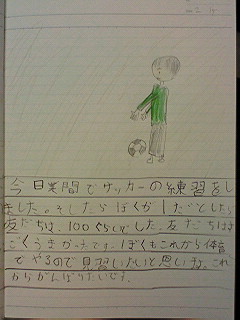 今日業間でサッカーの練習をし
ました。そしたらぼくが1だとしたら
友だちは、100ぐらいでした。友だちは
ごくうまかったです。ぼくもこれから体育
でやるので見習いたいと思います。これ
からがんばりたいです。